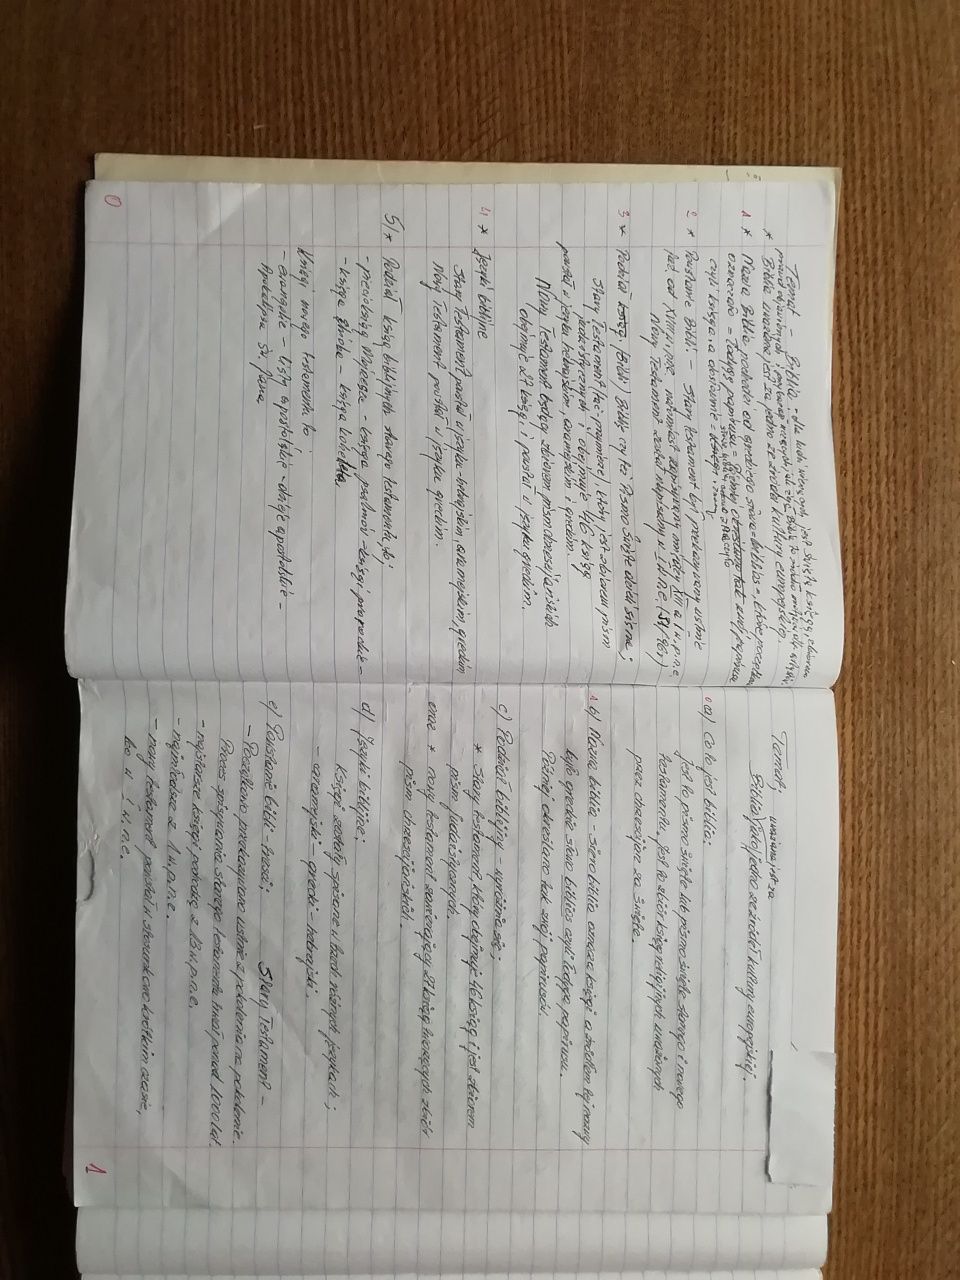 Temat - Biblia. - dla ludzi wierzących jest świętą księgą, zbiorem
prawd objawionych
* Biblia uważana jest za jedno ze źródeł kultury europejskiej.
1 * Nazwa Biblia pochodzi od greckiego słowa = biblios =, które początkowo
oznaczało = łodygę papirusu =
czyli księga, a dosłownie = księgi, zwoje
2 * Powstanie Biblii - Stary testament był przekazywany ustnie
już od XIII w p.n.e natomiast zapisywany między XIII a I w. p. n. e,
Nowy Testament został napisany w I w n.e. (51/96r)
3 * Podział ksiąg. (Biblii) Biblię czy też Pismo Święte dzieli się na;
Stary Testament (łac. przymierze), który jest zbiorem pism
judaistycznych i obejmuje 46 ksiąg
powstał w języku hebrajskim, aramejskim i greckim.
Nowy Testament będący zbiorem pism chrześcijańskich
obejmuje 27 ksiąg, i powstał w języku greckim.
4 * Języki biblijne
Stary Testament powstał w języku - hebrajskim, aramejskim, greckim
Nowy Testament powstał w języku greckim.
5/* Podział ksiąg biblijnych starego testamentu to;
- pięcioksiąg Mojżesza - księga psalmów -
- księga Hioba - księga Koheleta
Księgi nowego testamentu to
- ewangelie - listy apostolskie - dzieje apostolskie -
Apokalipsa św. Jana
0
Temat; uważana jest za
Biblia jako jedno ze źródeł kultury europejskiej.
0 a) Co to jest biblia;
Jest to pismo święte lub pismo święte starego i nowego
testamentu, jest to zbiór ksiąg religijnych uważanych
przez chrześcijan za święte.
1 b) Nazwa biblia - słowo biblia oznacza księgi a źródłem tej nazwy
było greckie słowo biblios czyli łodyga papirusu.
Później określano tak zwój papirusów.
c) Podział biblijny - wyróżnia się;
* Stary testament, który obejmuje 46 ksiąg i jest zbiorem
pism judaistycznych.
oraz * nowy testament zawierający 27 ksiąg tworzących zbiór
pism chrześcijańskich.
d) Języki biblijne;
Księgi zostały spisane w trzech różnych językach;
- aramejski - grecki - hebrajski.
e) Powstanie biblii - trwać; Stary Testament -
- Początkowo przekazywano ustnie z pokolenia na pokolenie.
Proces spisywania starego testamentu trwał ponad 1000 lat
- najstarsze księgi pochodzą z 13 w.p.n.e,
- najmłodsze z 1 w. p. n. e.
- nowy testament powstał w stosunkowo krótkim czasie,
bo w I w. n. e.
1